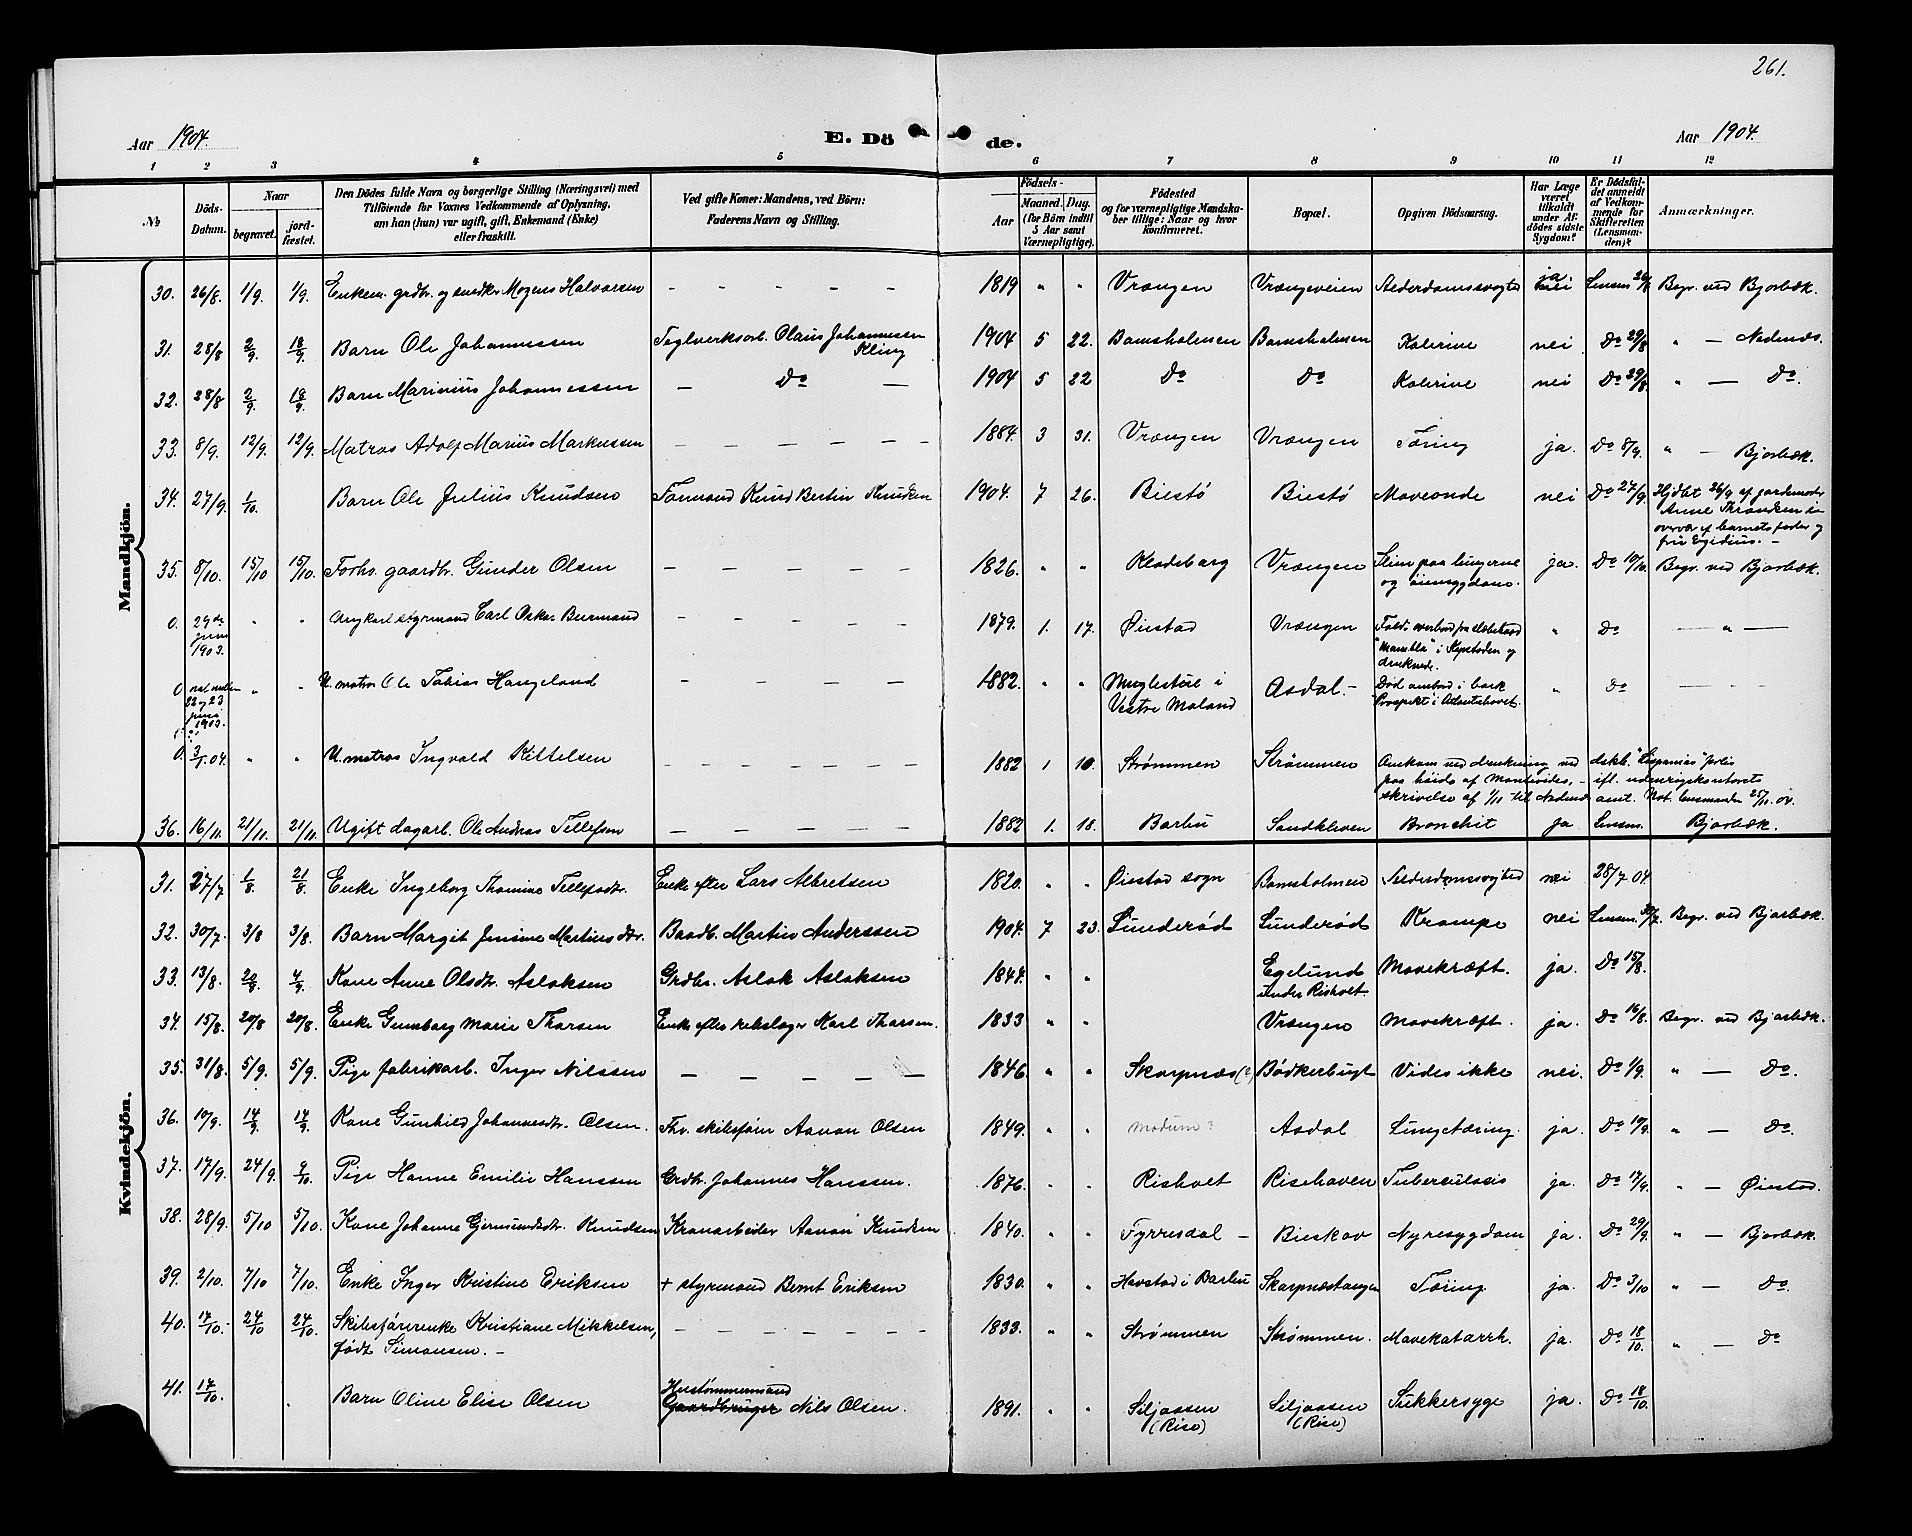 261.
Aar 1904.
E. Dö de.
Aar 1904.
1 2 3 4 5 6 7 8 9 10 11 12
No
Döds-Datum.
Naar
begravet.
jord-fæstet.
Den Dödes fulde Navn og borgerlige Stilling (Næringsvei) med
Tilföiende for Voxnes Vedkommende af Oplysning,
om han (hun) var ugift, gift, Enkemand (Enke)
eller fraskilt.
Ved gifte Koner: Mandens, ved Börn:
Faderens Navn og Stilling.
Födsels-
Aar
Maaned. Dag.
(for Börn indtil
5 Aar samt
Værnepligtige).
Födested
og for værnepligtige Mandska-
ber tillige: Naar og hvor
konfirmeret.
Bopæl.
Opgiven Dödsaarsag.
Har Læge
været
tilkaldt
under Af-
dödes sidste
Sygdom?
Er Dödsfal-
det anmeldt
af Vedkom-
mende for
Skifteretten
(Lensman-
den)?
Anmærkninger.
Mandkjön.
30. 26/8. 1/9. 1/9. Enkem. grdbr. og snedkr. Mogens Halvorsen - - - - - 1819 " " Vrængen Vrængeveien Alderdomssvaghed ja Lensm. Begr. ved Bjorbæk.
31. 28/8 2/9. 18/9. Barn Ole Johannessen Teglverksarb. Olaus Johannessen Kling 1904 5 22. Bomsholmen Bomsholmen Kolerine nei Do 29/8 " — Nedenæs.
32. 28/8 2/9. 18/9. Barn Marinius Johannessen — Do — 1904 5 22 Do Do Kolerine nei Do 29/8. " — Do.
33. 8/9. 12/9. 12/9. Matros Adolf Marius Markussen - - - - - 1884. 3 31. Vrængen Vrængen Tæring ja. Do 8/9. " — Bjorbæk.
34. 27/9. 1/10. Barn Ole Julius Knudsen Formand Knud Bertin Knudsen 1904. 7 26. Biestø Biestø Maveonde nei Do 27/9. Hjdbt 26/9 af jordemoder
Anne Thronsen i
overvær af barnets fader og
fru Egidius. —
35. 8/10. 15/10 15/10. Forhv. gaardbr. Gunder Olsen - - - - - 1826. " " Kladeborg Vrængen Slim paa lungerne
og øiensygdom. ja. Do 10/10. Begr. ved Bjorbæk.
0. 29de juni 1903. " " Ungkarl styrmand Carl Oskar Biermand - - - - - 1879. 1. 17. Øiestad Vrængen Faldt overbord fra
"Mambla" i Kapstaden og
druknede. " Do — " —
0 nat mellem
22 og 23
juni
1903. " " U. matros Ole Tobias Haugeland - - - - - 1882. " " Muglestøl i
Vestre Moland Asdal. — Død ombord i bark
"Prospekt" i Atlanterhavet. " Do — " —
0. 3/1. 04. " " U. matros Ingvald Kittelsen - - - - - 1882 1 10. Strømmen Strømmen Omkom ved drukning
paa høide af Montevideo, — ifl. udenrigskontorets
skrivelse af 1/11 til Nedenæs amt. Not. lensmanden 25/11. 04.
36. 16/11. 21/11. 21/11. Ugift dagarb. Ole Andreas Tellefsen - - - - - 1882 1. 18. Barbu Sandkleven Bronchit ja Lensm. Bjorbæk.
Kvindekjön.
31. 27/7 1/8. 21/8. Enke Ingeborg Thomine Tellefsdtr. Enke efter Lars Albretsen 1820. " " Øiestad sogn Bomsholmen Alderdomssvaghed nei 28/7 04.
32. 30/7. 3/8 3/8. Barn Margit Jensine Martinsdtr. Baadb. Martin Anderssen 1904. 7 23. Lunderød Lunderød Krampe nei Lensm. 30/7. Begr. ved Bjorbæk.
33. 13/8. 20/8. 4/9. Kone Anne Olsdtr. Aslaksen Grdbr. Aslak Aslaksen 1844. " " Egelund
under Risholt. Mavekræft. ja. Do 15/8.
34. 15/8. 20/8 20/8. Enke Gunborg Marie Thorsen Enke efter rebslager Karl Thorsen. 1833 " " Vrængen Mavekræft. ja. Do 16/8. Begr. ved Bjorbæk.
35. 31/8. 5/9. 5/9. Pige fabrikarb. Inger Nilssen - - - - - 1846. " " Skarpnæs (?) Bødkerbugt Vides ikke nei. Do 1/9. " — Do.
36. 10/9. 14/9. 14/9. Kone Gunhild Johannesdtr. Olsen. Fhv. skibsfører Aanon Olsen 1849. " " Modum? Asdal Lungetæring. ja. Do 10/9. " — Do.
37. 17/9. 24/9. 9/10. Pige Hanne Emilie Hanssen Grdbr. Johannes Hanssen. 1876. " " Risholt Risehaven Tuberculosis ja. Do 17/9. " — Øiestad.
38. 28/9. 5/10 5/10. Kone Johanne Gjermundsdtr. Knudsen Kranarbeider Aanon Knudsen 1840. " " Fyrresdal — Bieskov Nyresygdom ja. Do 29/9. " — Bjorbæk.
39. 2/10. 7/10 7/10. Enke Inger Kristine Eriksen + styrmand Bernt Eriksen 1830. " " Havstad i Barbu Skarpnæstangen Tæring ja. Do 3/10 " — Do
40. 17/10. 24/10 24/10. Skibsførerenke Kristiane Mikkelsen,
født Simonsen. — - - - - - - 1833. " " Strømmen Strømmen. Mavekatarrh. ja. Do 18/10. " — Do
41. 17/10. Barn Oline Elise Olsen Hustømmermand
Gaardbruger Nils Olsen. 1891. " " Siljaasen
(Rise) Siljaasen
(Rise) Sukkersyge ja. Do 18/10.